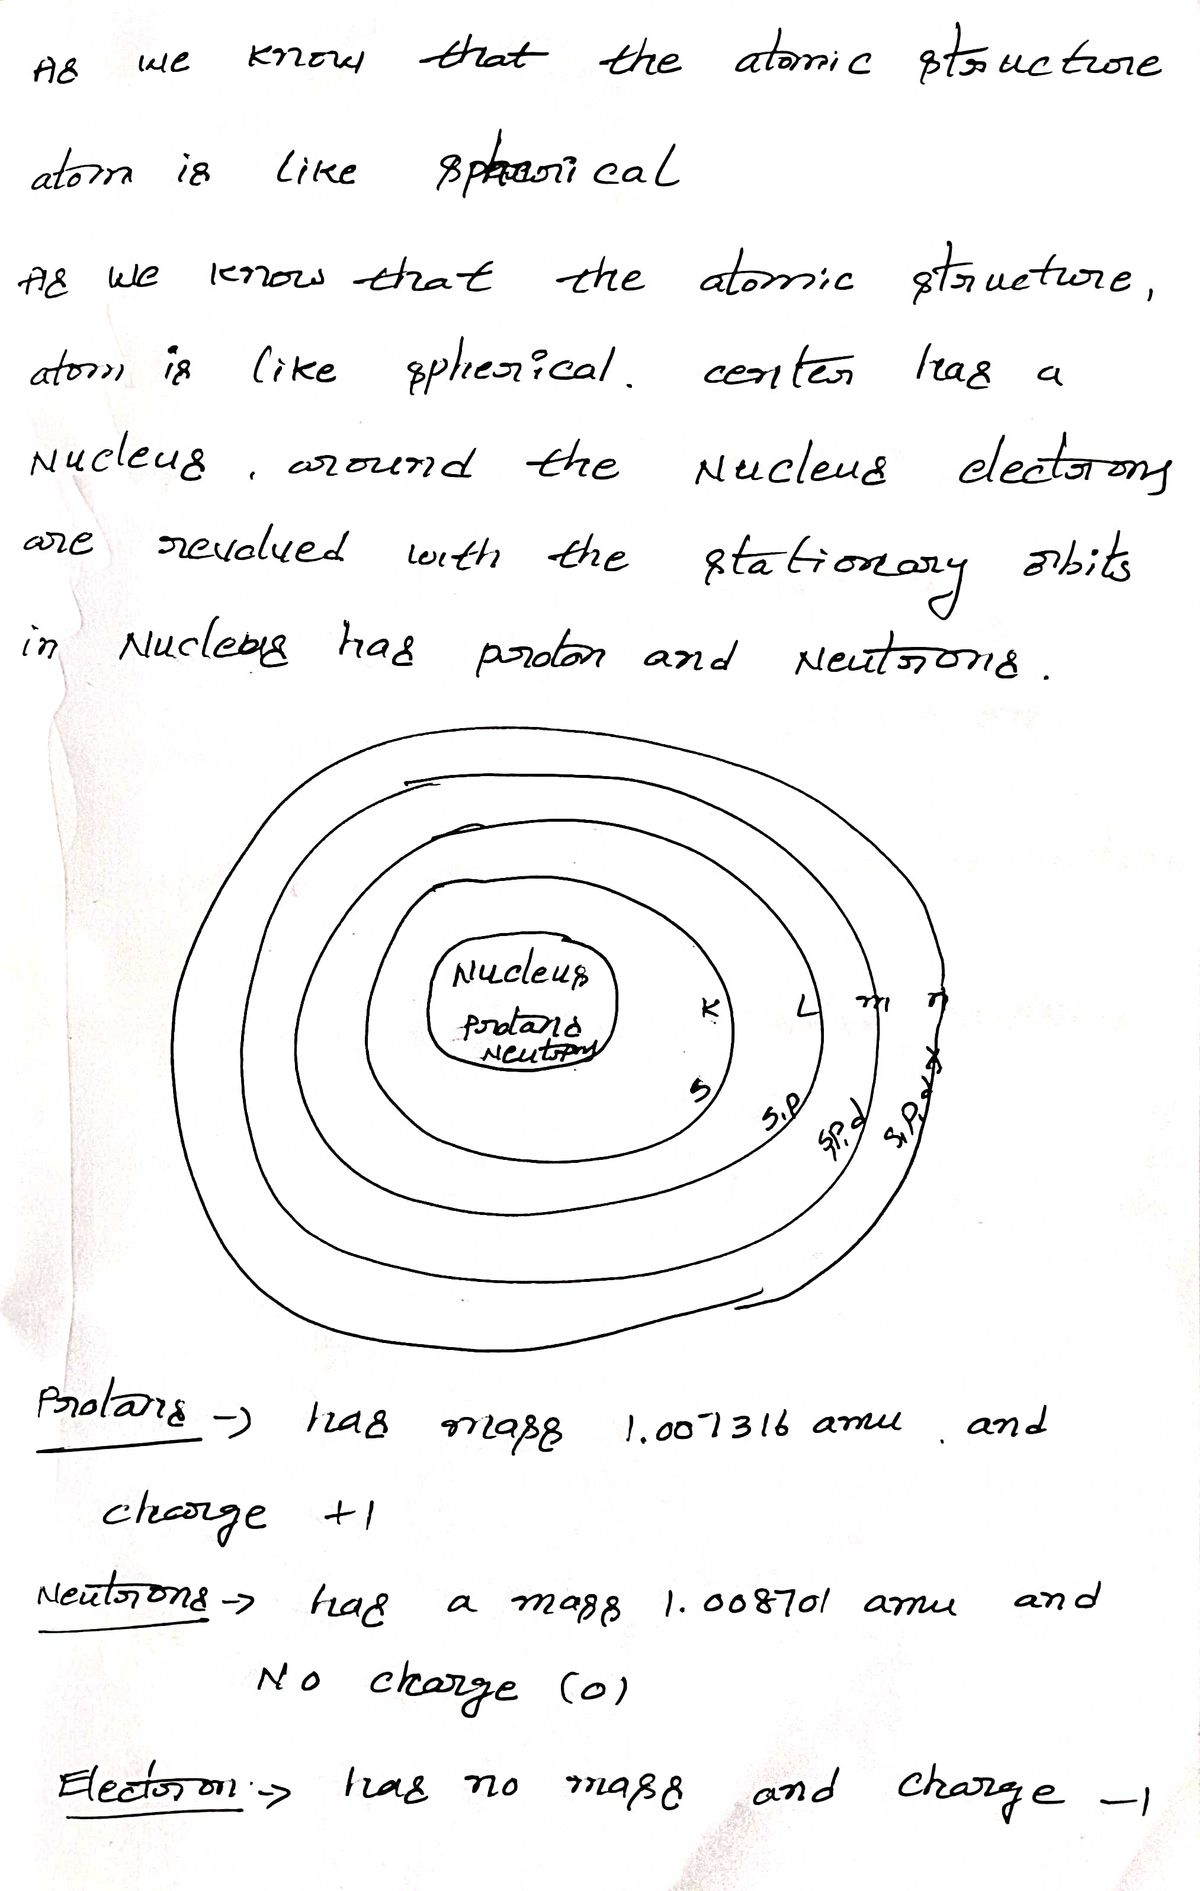 As we know that the atomic structure
atom is like spherical
As we know that the atomic structure,
atom is like spherical. center has a
Nucleus. around the Nucleus electrons
are revolved with the stationary orbits
in Nucleus has proton and Neutrons.
Nucleus
protans
Neutrons
K L m n
S
S,P
S,P,d
S,P,d,f
Protans → has mass 1.007316 amu. and
charge +1
Neutrons → has a mass 1.008701 amu and
No charge (0)
Electron → has no mass and charge -1